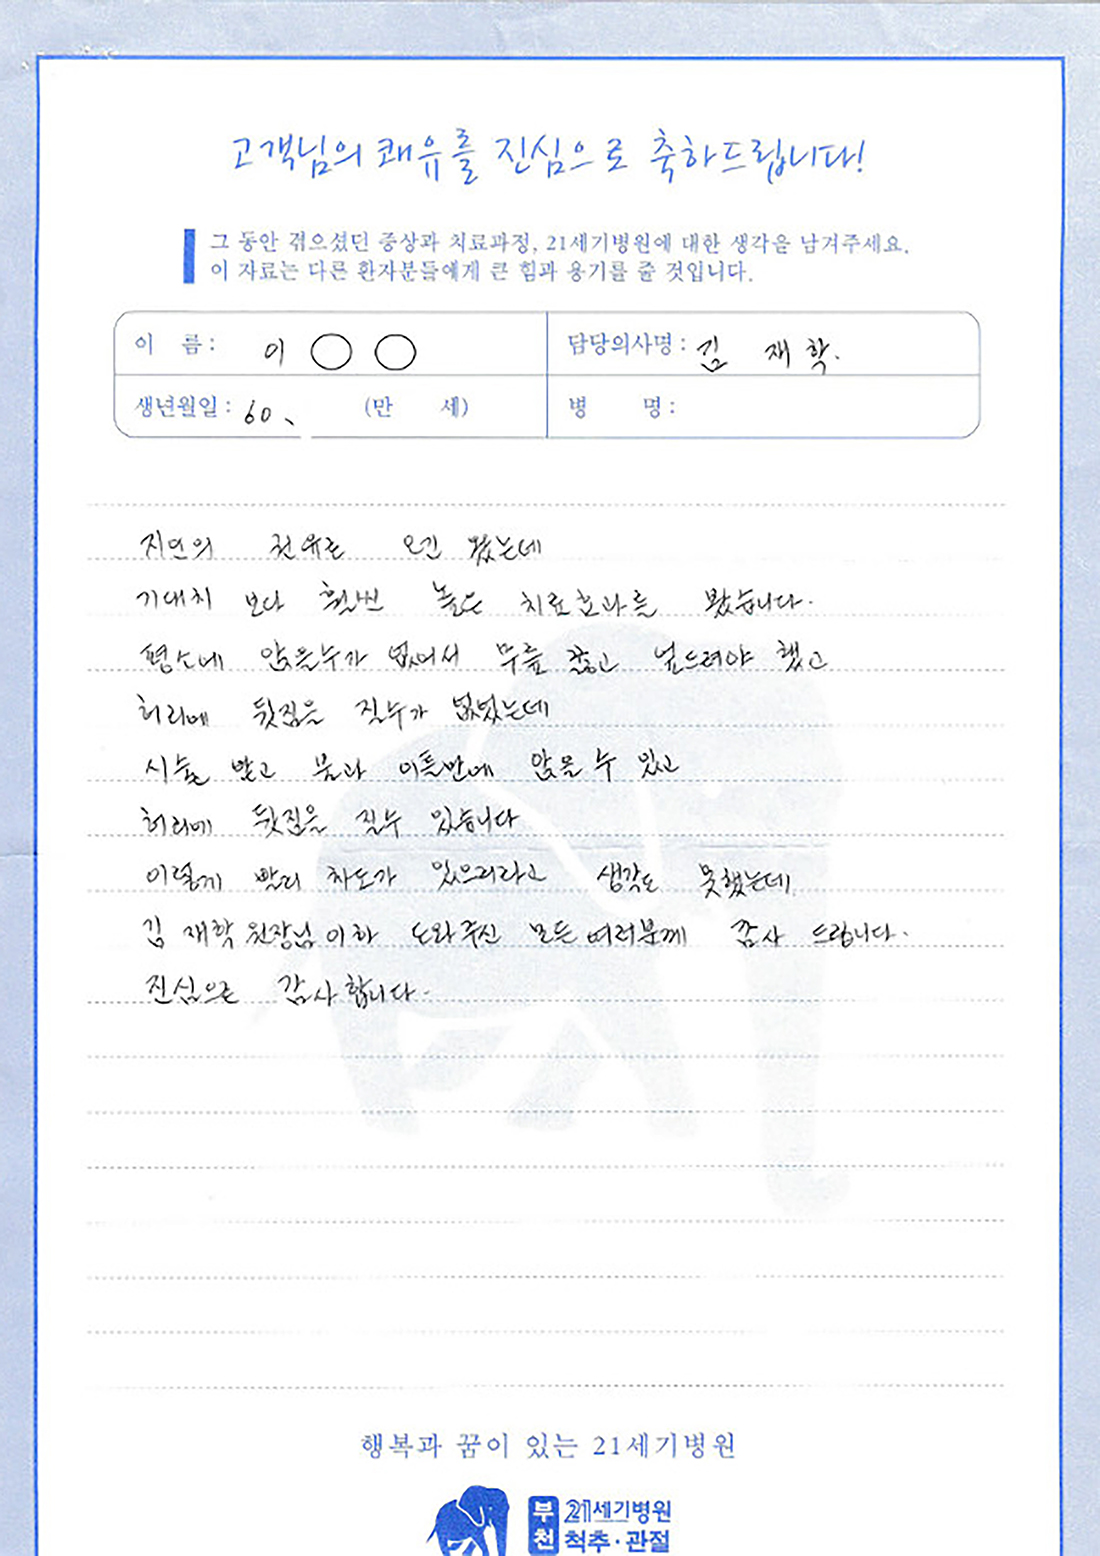 고객님의 쾌유를 진심으로 축하드립니다!
그 동안 겪으셨던 증상과 치료과정, 21세기병원에 대한 생각을 남겨주세요.
이 자료는 다른 환자분들에게 큰 힘과 용기를 줄 것입니다.
이 름 : 이 ○ ○ 담당의사명 : 김 재 학.
생년월일 : 60. (만 세) 병 명 :
지인의 권유로 오긴 왔는데
기대치 보다 훨씬 높은 치료효과를 봤습니다.
평소에 앉을수가 없어서 무릎 꿇고 엎드려야 했고
허리에 뒷짐을 질수가 없었는데
시술 받고 불과 이틀만에 앉을 수 있고
허리에 뒷짐을 질수 있습니다
이렇게 빨리 차도가 있으리라고 생각도 못했는데
김 재학 원장님 이하 도와주신 모든 여러분께 감사 드립니다.
진심으로 감사합니다.
행복과 꿈이 있는 21세기병원
부천 21세기병원
척추·관절